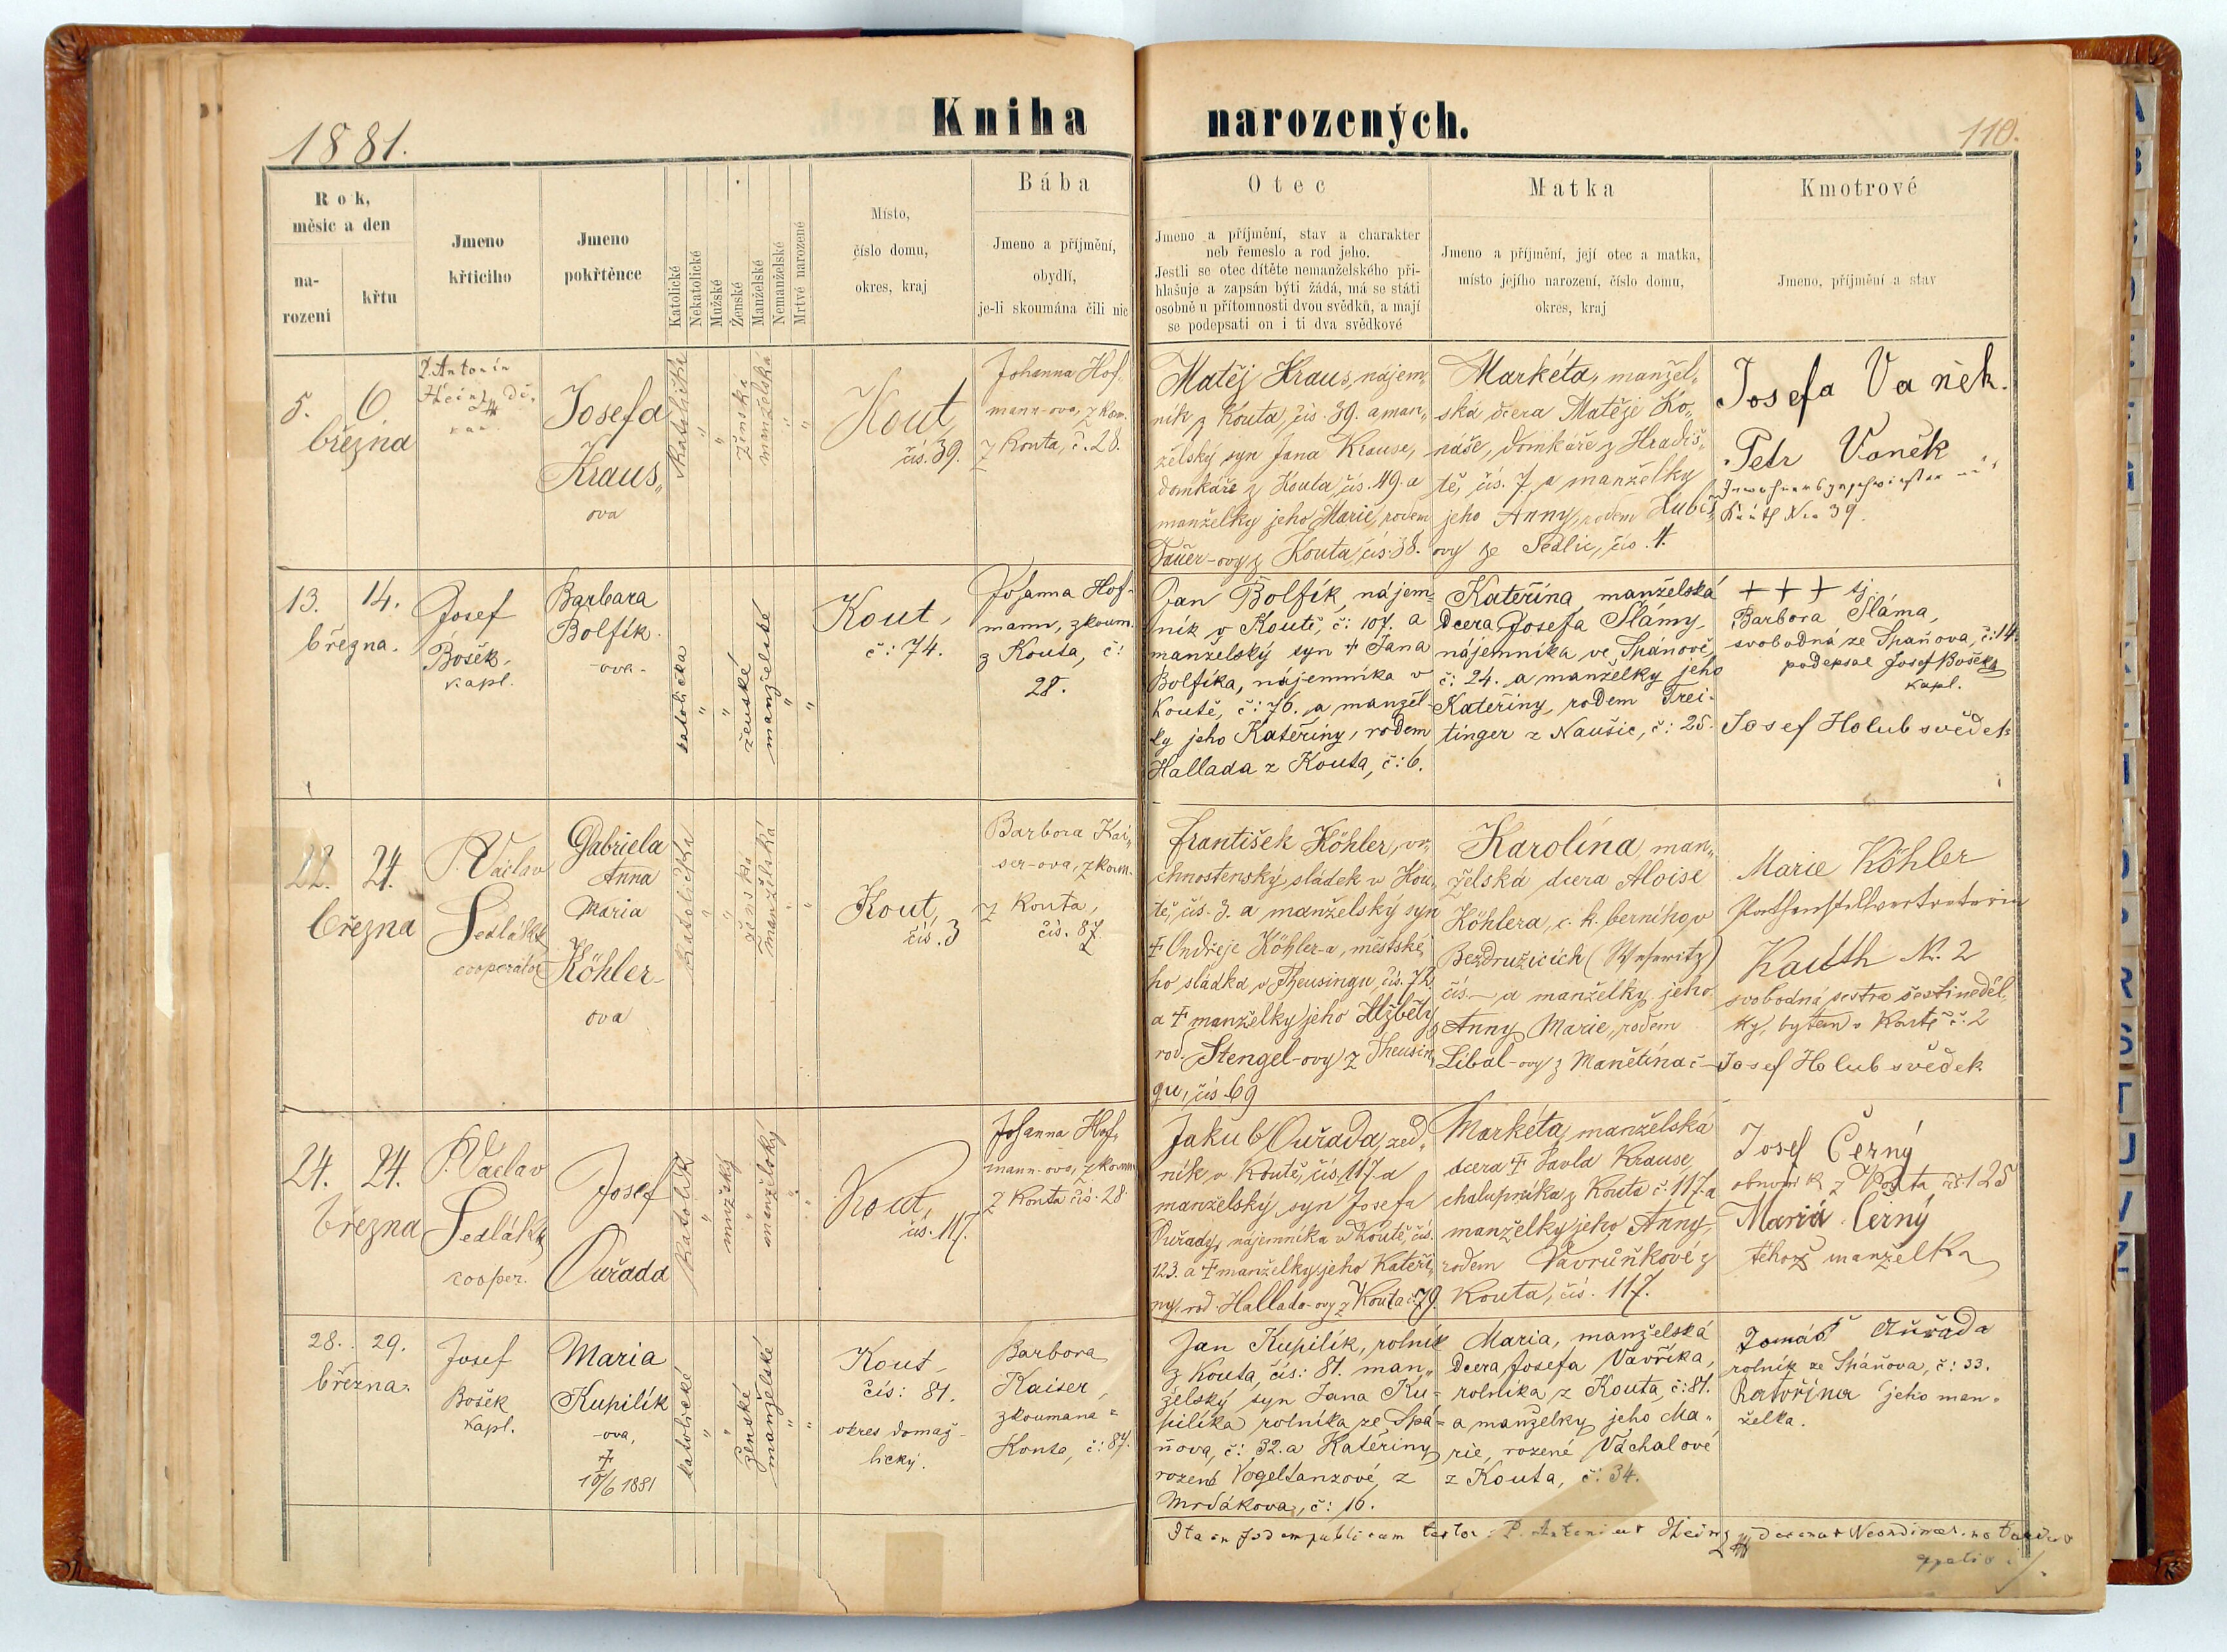 1881.
Kniha narozených.
110.
Rok,
měsíc a den
na-
rození
křtu
Jmeno
křticího
Jmeno
pokřtěnce
Katolické
Nekatolické
Mužské
Ženské
Manželské
Nemanželské
Mrtvé narozené
Místo,
číslo domu,
okres, kraj
Bába
Jmeno a příjmění,
obydlí,
je-li skoumána čili nic
Otec
Jmeno a příjmění, stav a charakter
neb řemeslo a rod jeho.
Jestli se otec dítěte nemanželského při-
hlašuje a zapsán býti žádá, má se státi
osobně u přítomnosti dvou svědků, a mají
se podepsati on i ti dva svědkové
Matka
Jmeno a příjmění, její otec a matka,
místo jejího narození, číslo domu,
okres, kraj
Kmotrové
Jmeno, příjmění a stav
5. 6.
března
P. Antonín
Heinz, dě-
kan.
Josefa
Kraus„
ova
katolička
"
"
ženská
manželská
"
"
Kout,
čís. 39.
Johanna Hof„
mann-ova, zkou„
z Kouta, č. 28.
Matěj Kraus, nájem„
ník z Kouta, čís. 39. a man„
želský syn Jana Krause,
domkáře z Kouta, čís. 49. a
manželky jeho Marie, rodem
Pauer-ovy z Kouta, čís. 38.
Markéta, manžel„
ská dcera Matěje Ko„
náše, domkáře z Hradiš„
tě, čís. 7. a manželky
jeho Anny, rodem Kubeš„
ovy ze Sedlic, čís. 4.
Josefa Vaněk.
Petr Vaněk
Kauth Nro 39.
13. 14.
března.
Josef
Bošek,
kapl.
Barbara
Bolfík
-ova-
katolička
"
"
ženské
manželské
"
"
Kout,
č: 74.
Johanna Hof-
mann, zkoum.
z Kouta, č:
28.
Jan Bolfík, nájem=
ník v Koutě, č: 107. a
manželský syn † Jana
Bolfíka, nájemníka v
Koutě, č: 76. a manžel-
ky jeho Kateřiny, rodem
Hallada z Kouta, č: 6.
Kateřina, manželská
dcera Josefa Slámy,
nájemníka ve Spáňově,
č: 24. a manželky jeho
Kateřiny, rodem Trei-
tinger z Naušic, č: 25.
+ + + tj.
Barbora Sláma,
svobodná ze Spáňova, č: 14.
podepsal Josef Bošek
kapl.
Josef Holub svědek
22. 24.
března
P. Václav
Sedláček
cooperátor
Gabriela
Anna
Maria
Köhler-
ova
katolička
"
"
ženská
manželská
"
"
Kout,
čís. 3
Barbora Kai„
ser-ova, zkoum.
z Kouta,
čís. 87.
František Köhler, vr„
chnostenský sládek v Kou„
tě, čís. 3. a manželský syn
† Ondřeje Köhler-a, městské„
ho sládka v Theusingu, čís. 72.
a † manželky jeho Alžběty,
rod. Stengel-ovy z Theusin„
gu, čís. 69
Karolína, man„
želská dcera Aloise
Köhlera, c. k. berního v
Bezdružicích (Weseritz)
čís. — a manželky jeho
Anny Marie, rodem
Líbal-ovy z Manětína č —
Marie Köhler
Pathenstellvertreterin
Kauth Nr. 2
svobodná sestra šestineděl„
ky, bytem v Koutě č: 2
Josef Holub svědek
24. 24.
března
P. Václav
Sedláček
cooper.
Josef
Ouřada
katolík
"
mužský
"
manželský
"
"
Kout,
čís. 117.
Johanna Hof„
mann-ova, zkoum
z Kouta čís. 28
Jakub Ouřada, zed„
ník v Koutě, čís. 117. a
manželský syn Josefa
Ouřady, nájemníka v Koutě, čís.
123. a † manželky jeho Kateři„
ny, rod. Hallada-ovy z Kouta č. 79.
Markéta, manželská
dcera † Pavla Krause,
chalupníka z Kouta č. 117. a
manželky jeho Anny,
rodem Vavruňkové z
Kouta, čís. 117.
Josef Černý
z Kouta čís 125
Maria Černý
téhož manželka
28. 29.
března.
Josef
Bošek
kapl.
Maria
Kupilík
-ova,
†
10/6 1881
katolické
"
"
ženské
manželské
"
"
Kout,
čís: 81.
okres domaž-
lický.
Barbora
Kaiser,
zkoumana z
Kouta, č: 87.
Jan Kupilík, rolník
z Kouta, čís: 81. man„
želský syn Jana Ku=
pilíka rolníka ze Spá=
ňova, č: 32. a Kateřiny
rozené Vogeltanzové, z
Mrdákova, č: 16.
Maria, manželská
dcera Josefa Vavříka,
rolníka z Kouta, č: 81.
a manželky jeho Ma„
rie, rozené Váchalové
z Kouta, č: 34.
Tomáš Auřada
rolník ze Spáňova, č: 33.
Kateřina jeho man„
želka.
Ita in fidem publicam testor: P. Antonius Heinz